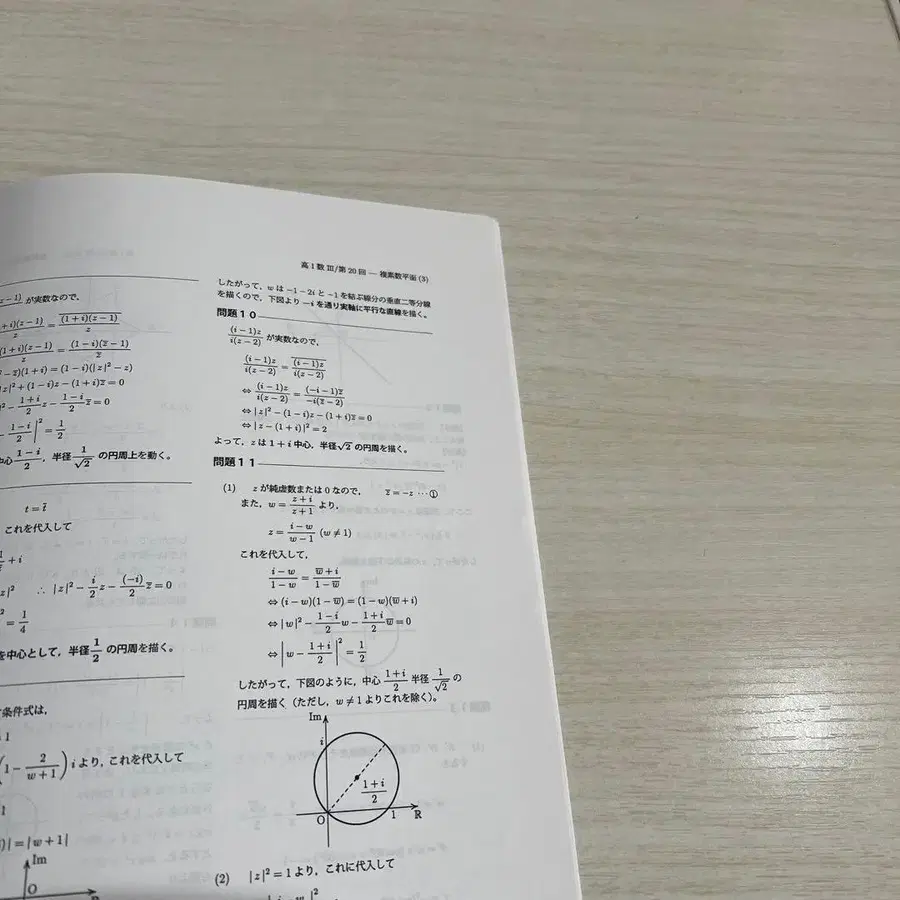 高1数III/第20回 — 複素数平面(3)
z−1) が実数なので,
+i)(z−1)/z = \overline{(1+i)(z−1)}/z
(1+i)(z−1)/z = (1−i)(z̅−1)/z̅
−z̅)(1+i) = (1−i)(|z|²−z)
z|²+(1−i)z−(1+i)z̅=0
²−(1+i)/2 z−(1−i)/2 z̅=0
−(1−i)/2|²=1/2
中心(1−i)/2, 半径1/√2 の円周上を動く。
t=t̅
, これを代入して
+i
z|² ∴ |z|²−i/2 z−(−i)/2 z̅=0
²=1/4
を中心として, 半径1/2 の円周を描く。
条件式は,
1
(1−2/(w+1))i より, これを代入して
1
)|=|w+1|
Im
O
したがって, w は −1−2i と −1 を結ぶ線分の垂直二等分線
を描くので, 下図より −i を通り実軸に平行な直線を描く。
問題10
(i−1)z/i(z−2) が実数なので,
(i−1)z/i(z−2) = \overline{(i−1)z}/\overline{i(z−2)}
⇔ (i−1)z/i(z−2) = (−i−1)z̅/−i(z̅−2)
⇔ |z|²−(1−i)z−(1+i)z̅=0
⇔ |z−(1+i)|²=2
よって, z は 1+i 中心, 半径√2 の円周を描く。
問題11
(1) z が純虚数または0なので, z̅=−z …①
また, w=(z+i)/(z+1) より,
z=(i−w)/(w−1) (w≠1)
これを代入して,
(i−w)/(1−w) = (w̅+i)/(1−w̅)
⇔ (i−w)(1−w̅)=(1−w)(w̅+i)
⇔ |w|²−(1−i)/2 w−(1+i)/2 w̅=0
⇔ |w−(1+i)/2|²=1/2
したがって, 下図のように, 中心 (1+i)/2 半径 1/√2 の
円周を描く (ただし, w≠1 よりこれを除く)。
Im
i
(1+i)/2
O 1 R
(2) |z|²=1 より, これに代入して